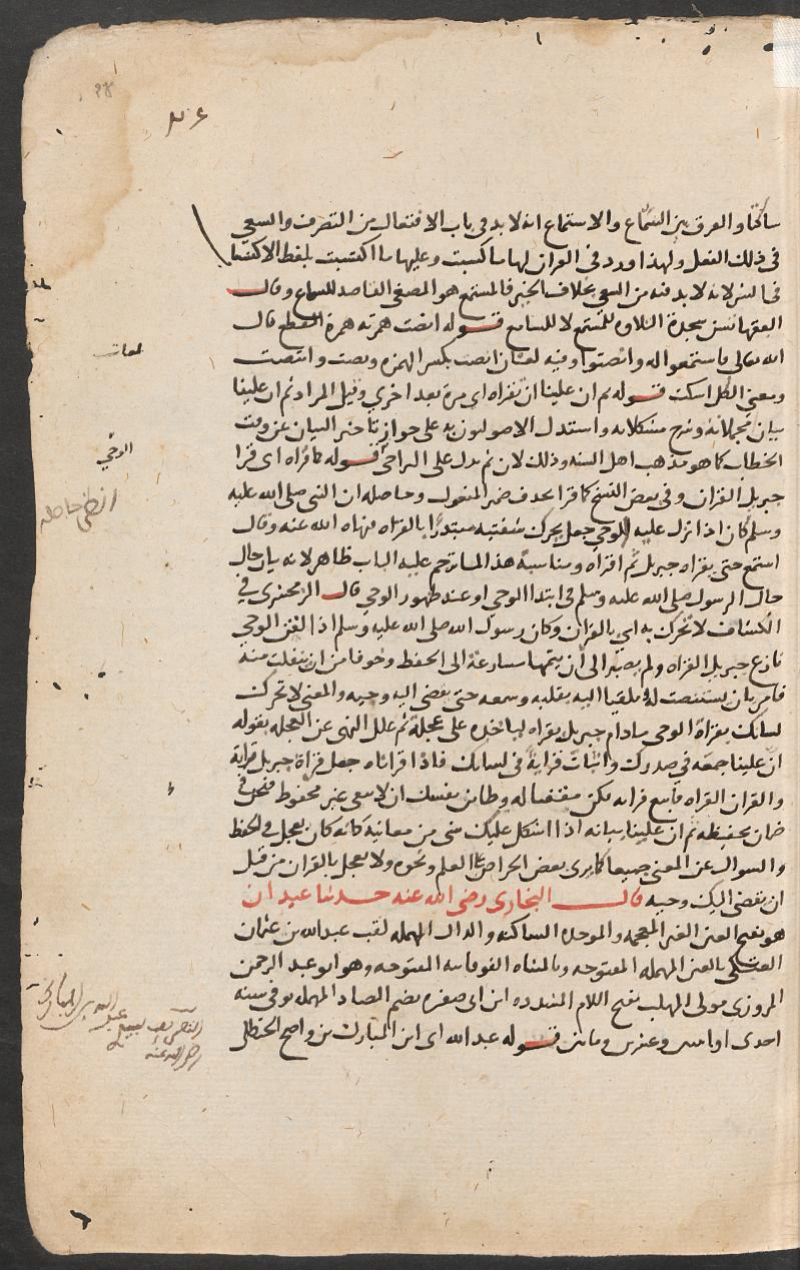 ٣٤
ساكتا والفرق بين السماع والاستماع انه لا بد في باب الافتعال من التصرف والسعي
في ذلك الفعل ولهذا ورد في القران لها ما كسبت وعليها ما اكتسبت بلفظ الاكتساب
في الشر لانه لا بد فيه من السعي بخلاف الخير فالمستمع هو المصغي القاصد للسماع وقال
الفقها تسن سجدة التلاوه للمستمع لا للسامع قوله انصت همزته همزة القطع قال
الله تعالى فاستمعوا له وانصتوا وفيه لغتان انصت بكسر الهمزه ونصت وانتصت
ومعنى الكل اسكت قوله ثم ان علينا ان تقراه اي مرة بعد اخري وقيل المراد ثم ان علينا
بيان مجملاته وشرح مشكلاته واستدل الاصوليون به على جواز تاخير البيان عن وقت
الخطاب كما هو مذهب اهل السنه وذلك لان ثم يدل على التراخي قوله كما قراه اي قرا
جبريل القران وفي بعض النسخ كما قرا بحذف ضمير المفعول وحاصله ان النبي صلى الله عليه
وسلم كان اذا نزل عليه الوحي جعل يحرك شفتيه مبتدرا بالقراه فنهاه الله عنه وقال
استمع حتى يقراه جبريل ثم اقراه ومناسبة هذا لما ترجم عليه الباب ظاهر لانه بيان حال
حال الرسول صلى الله عليه وسلم في ابتدا الوحي او عند ظهور الوحي قال الزمخشري في
الكشاف لا تحرك به اي بالقران وكان رسول الله صلى الله عليه وسلم اذا لقن الوحي
نازع جبريل القراه ولم يصبر الى ان يتمها مسارعة الى الحفظ وخوفا من ان يتفلت منه
فامر بان يستنصت له ملقيا اليه بقلبه وسمعه حتى يقضى اليه وحيه والمعنى لا تحرك
لسانك بقراة الوحي مادام جبريل يقراه لتاخذه على عجلة ثم علل النهي عن العجله بقوله
ان علينا جمعه في صدرك واثبات قراية في لسانك فاذا قراناه جعل قراة جبريل قرايه
والقران القراه فاتبع قرانه فكن مقتفيا له وطامن نفسك ان لا يبقى غير محفوظ فنحن في
ضمان تحفيظه ثم ان علينا بيانه اذا اشكل عليك شي من معانيه كانه كان يعجل في الحفظ
والسوال عن المعنى جميعا كما يرى بعض الحراص على العلم ونحوه ولا تعجل بالقران من قبل
ان يقضى اليك وحيه قال البخاري رضي الله عنه حدثنا عبدان
هو بفتح العين الغير المعجمه والموحده الساكنه والدال المهمله لقب عبدالله بن عثمان
العتكي بالعين المهمله المفتوحه وبالمثناه الفوقانيه المفتوحه وهو ابو عبد الرحمن
المروزي مولى المهلب بفتح اللام المشدده ابن ابي صفره بضم الصاد المهمله توفي سنه
احدى او اثنتين وعشرين ومائتين قوله عبد الله اي ابن المبارك بن واضح الحنظلي
لغات
الوحي
انظر حاصله
عبد الله بن المبارك
رضي الله عنه